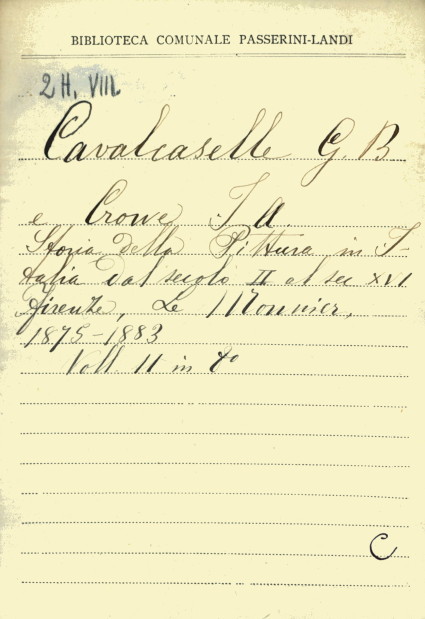 BIBLIOTECA COMUNALE PASSERINI-LANDI
2 H. VIII.
Cavalcaselle G. B
e Crowe J A
Storia della Pittura in I-
talia dal secolo II al sec XVI
Firenze, Le Monnier,
1875-1883
Voll. 11 in 8°
C